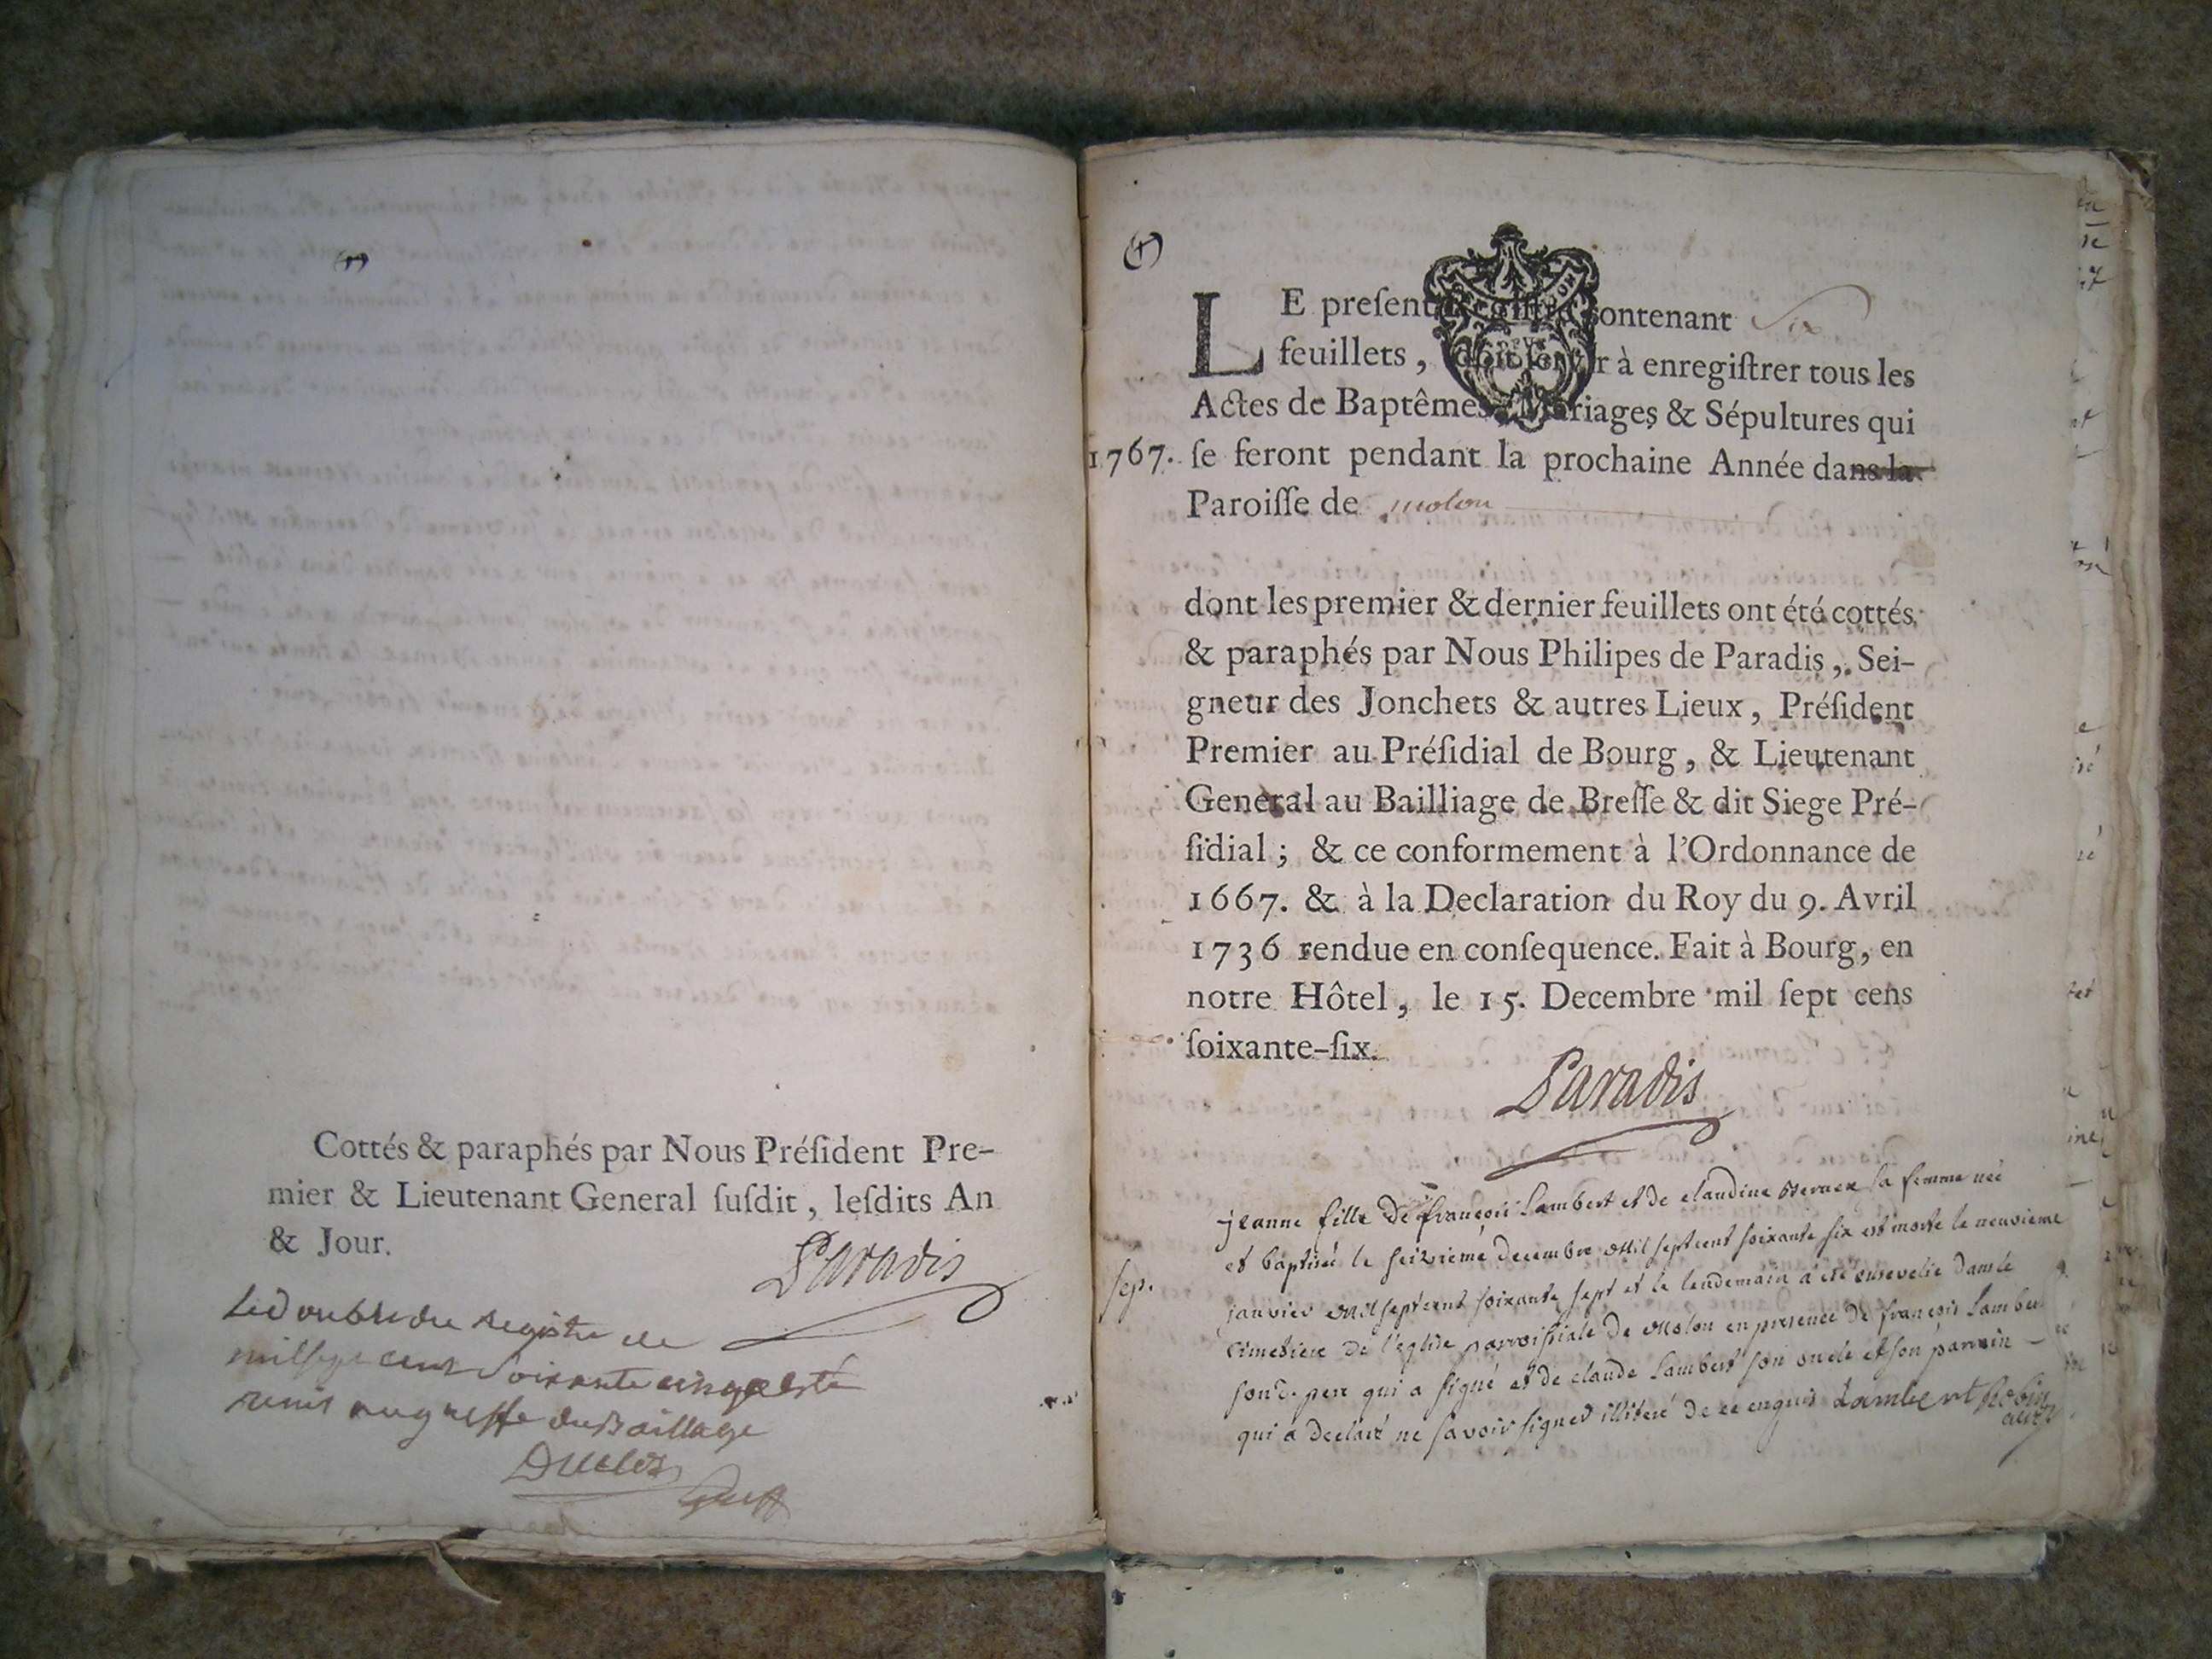 Cottés & paraphés par Nous Préſident Pre-
mier & Lieutenant General ſuſdit, leſdits An
& Jour.
Paradis
Le double du Registre de
mil sept cent soixante cinq a esté
remis au greffe du Baillage
Duclos
Greff
LE preſent Regiſtre contenant Six
feuillets, doit ſervir à enregiſtrer tous les
Actes de Baptêmes, Mariages & Sépultures qui
1767. ſe feront pendant la prochaine Année dans la
Paroiſſe de molon
dont les premier & dernier feuillets ont été cottés
& paraphés par Nous Philipes de Paradis, Sei-
gneur des Jonchets & autres Lieux, Préſident
Premier au Préſidial de Bourg, & Lieutenant
General au Bailliage de Breſſe & dit Siege Pré-
ſidial; & ce conformement à l'Ordonnance de
1667. & à la Declaration du Roy du 9. Avril
1736 rendue en conſequence. Fait à Bourg, en
notre Hôtel, le 15. Decembre mil ſept cens
ſoixante-ſix.
Paradis
jeanne fille de françois Lambert et de claudine sa femme née
et baptisée le seizieme decembre mil sept cent soixante six est morte le neuvieme
sep. janvier mil sept cent soixante sept et le lendemain a été ensevelie dans le
cimetiere de l'eglise parroissiale de Molon en presence de françois Lambert
son d. pere qui a signé et de claude Lambert son oncle et son parrein
qui a declaré ne savoir signer illiteré de ce enquis Lambert Robin
curé